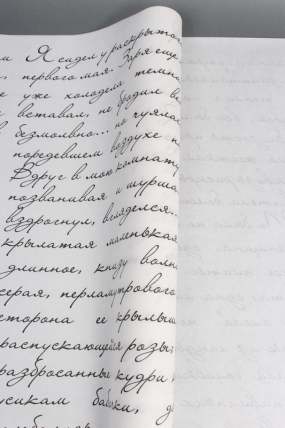 Я сидел у раскрытого
первого мая. Заря еще
уже холодела темна
вставал, не бродил в
безмолвно... но чуялас
поредевшем воздухе п
Вдруг в мою комнату
позванивая и шурша
вздрогнул, вгляделся...
крылатая маленькая
длинное, книзу волн
серая, перламутрового
сторона ее крыльы
распускающейся розы;
разбросанны кудри
усикам бабоки, д